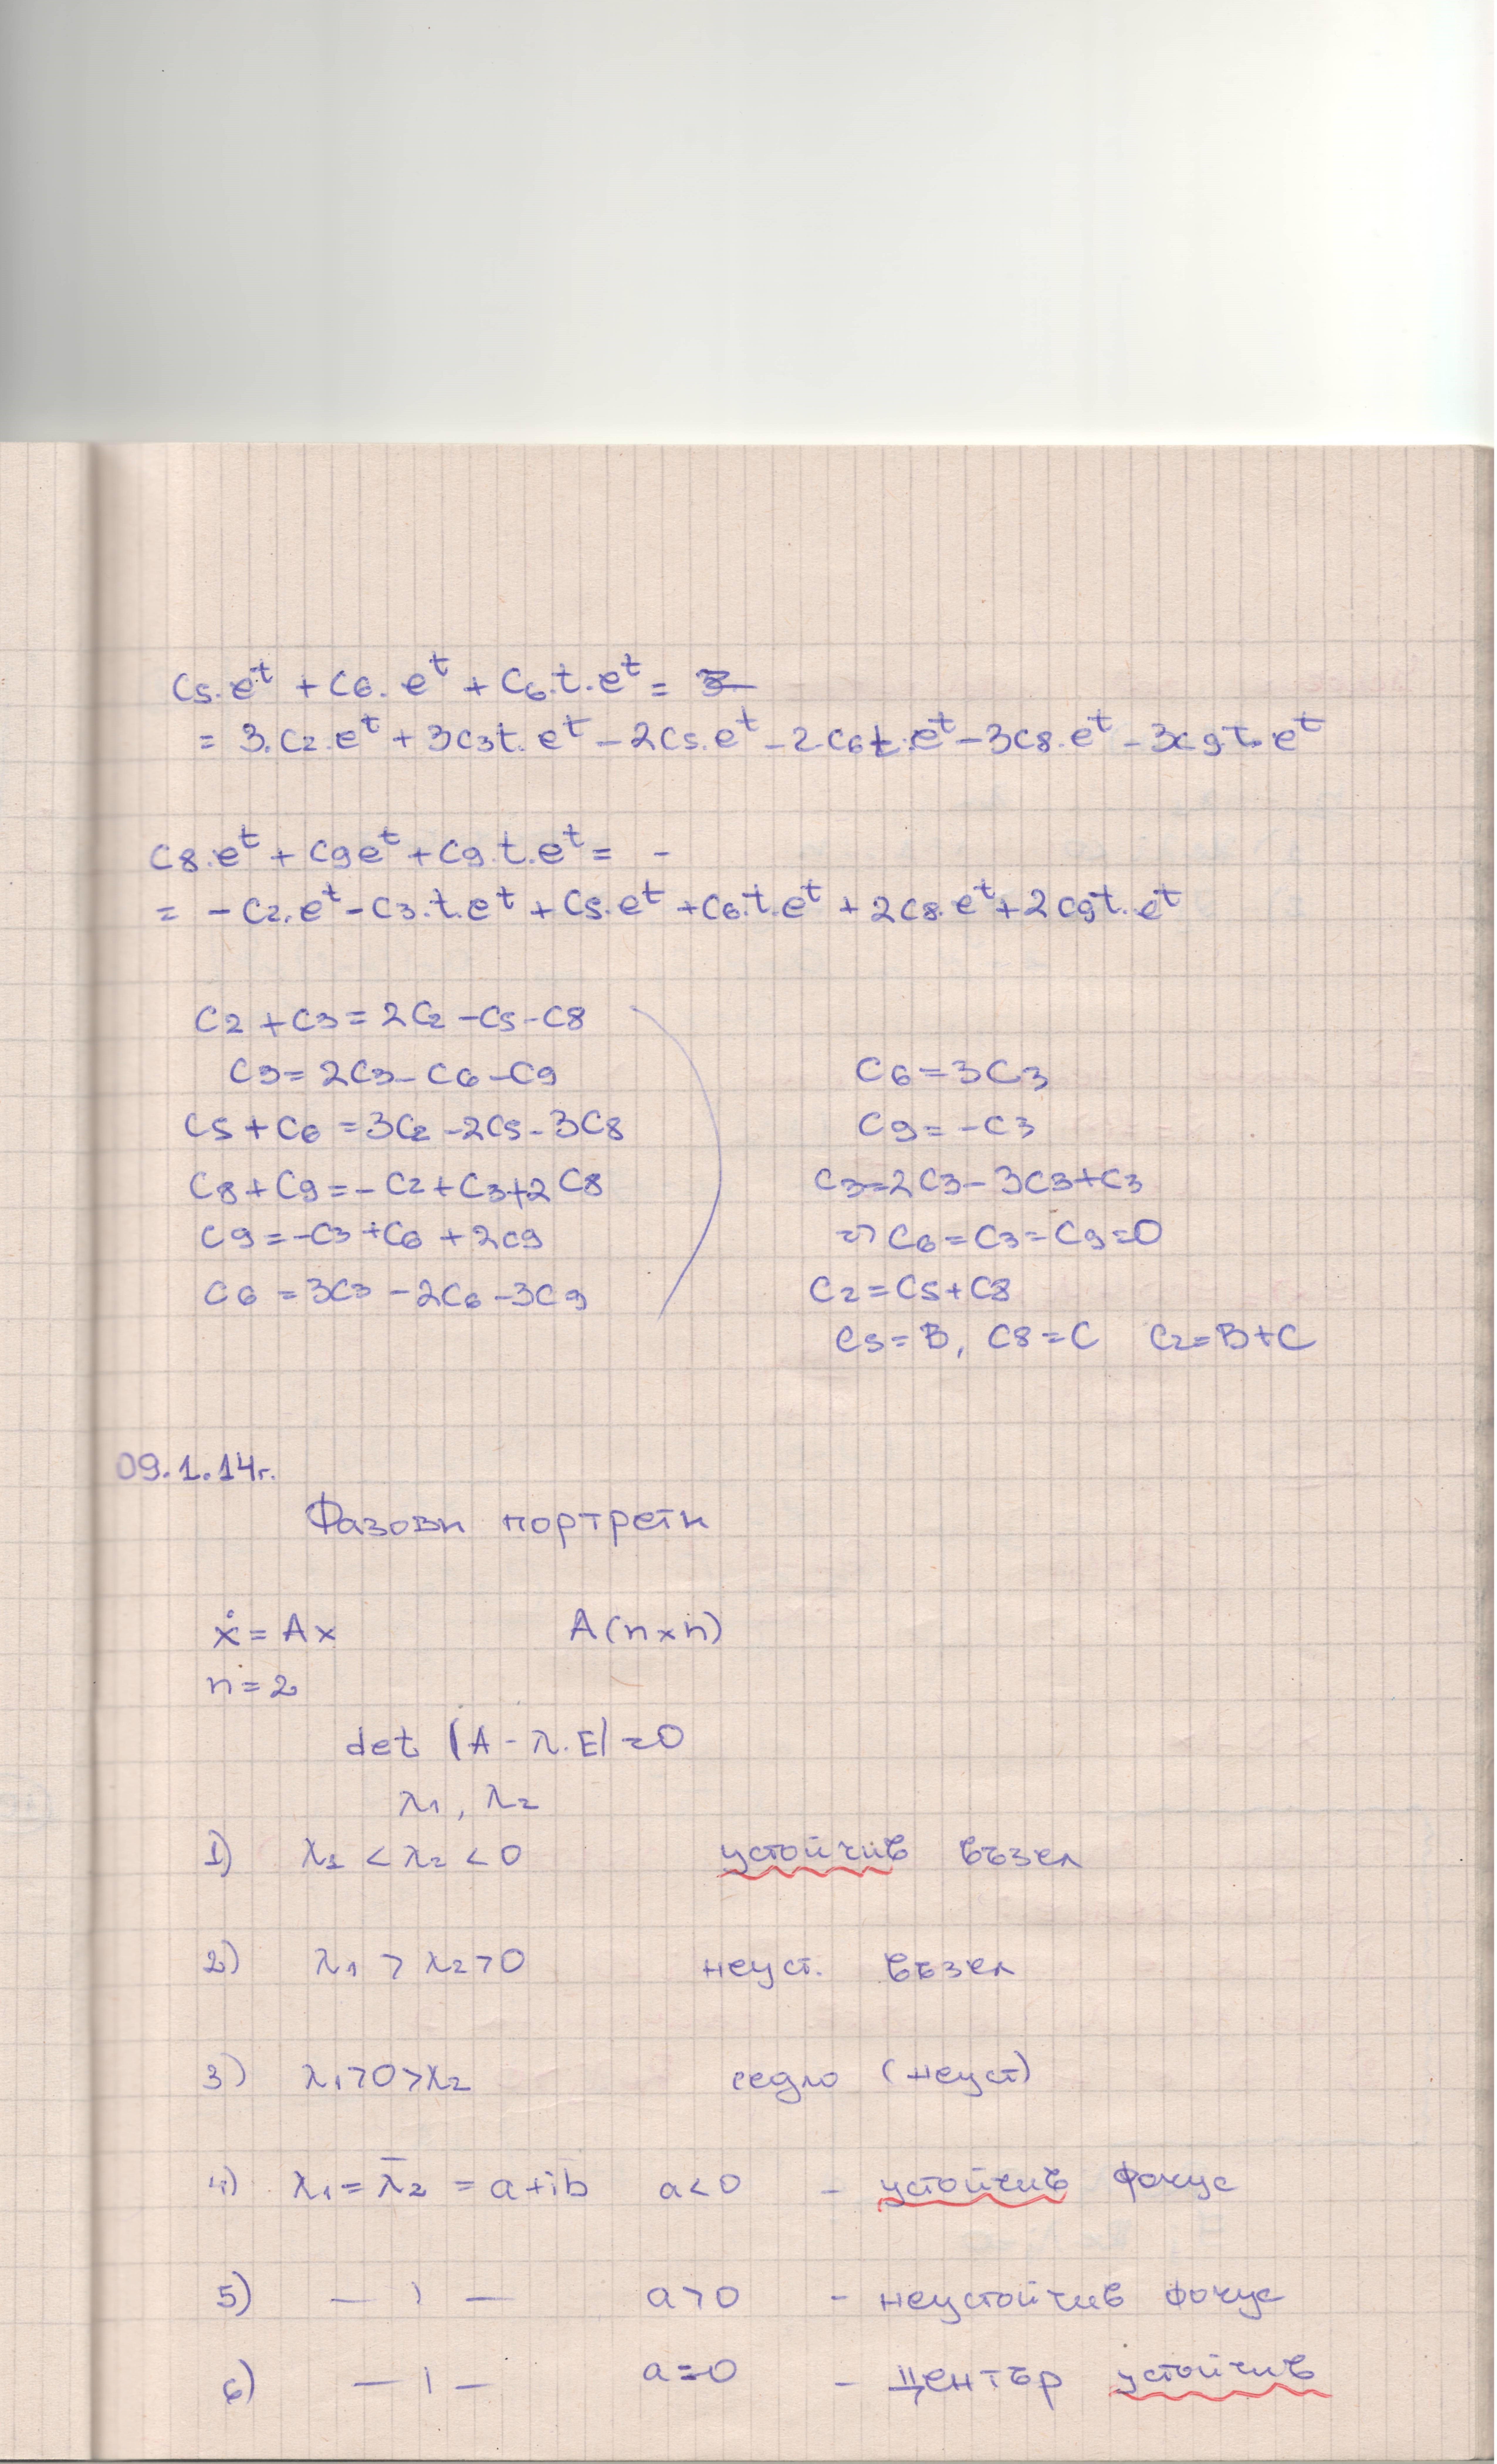 C5.e^t + C6.e^t + C6.t.e^t =
= 3.C2.e^t + 3C3t.e^t - 2C5.e^t - 2.C6t.e^t - 3C8.e^t - 3C9.t.e^t
C8.e^t + C9e^t + C9.t.e^t = -
= -C2.e^t - C3.t.e^t + C5.e^t + C6.t.e^t + 2C8.e^t + 2C9t.e^t
C2 + C3 = 2C2 - C5 - C8
C3 = 2C3 - C6 - C9
C5 + C6 = 3C2 - 2C5 - 3C8
C8 + C9 = -C2 + C3 + 2C8
C9 = -C3 + C6 + 2C9
C6 = 3C3 - 2C6 - 3C9
C6 = 3C3
C9 = -C3
C3 = 2C3 - 3C3 + C3
=> C6 = C3 = C9 = 0
C2 = C5 + C8
C5 = B, C8 = C C2 = B + C
09.1.14г.
Фазови портрети
ẋ = Ax A(n×n)
n = 2
det |A - λ.E| = 0
λ1, λ2
1) λ1 < λ2 < 0 устойчив възел
2) λ1 > λ2 > 0 неуст. възел
3) λ1 > 0 > λ2 седло (неуст)
4) λ1 = λ̄2 = a + ib a < 0 - устойчив фокус
5) — ı — a > 0 - неустойчив фокус
6) — ı — a = 0 - център устойчив